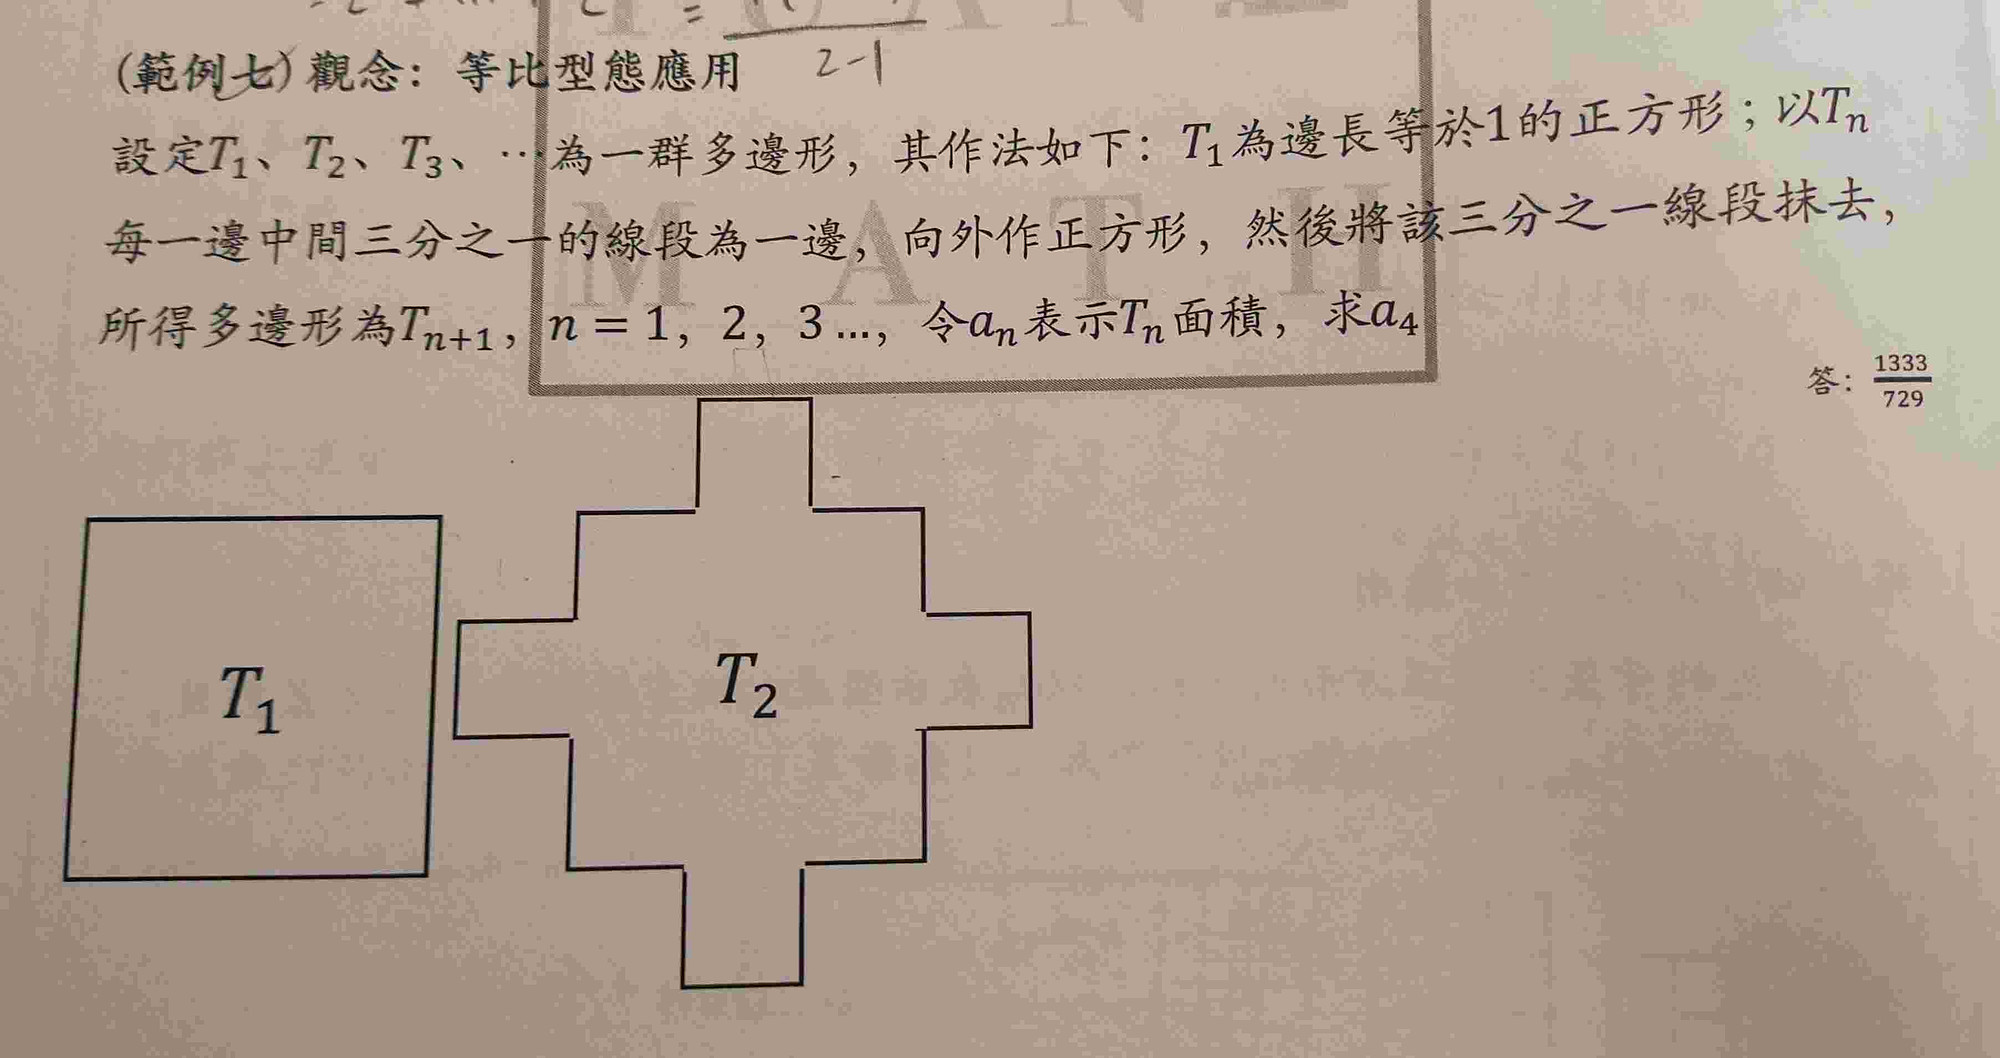 (範例七) 觀念：等比型態應用
2-1
設定T₁、T₂、T₃、⋯為一群多邊形，其作法如下：T₁為邊長等於1的正方形；以Tₙ
每一邊中間三分之一的線段為一邊，向外作正方形，然後將該三分之一線段抹去，
MATH
所得多邊形為Tₙ₊₁，n = 1，2，3 …，令aₙ表示Tₙ面積，求a₄
答：1333/729
T₁
T₂